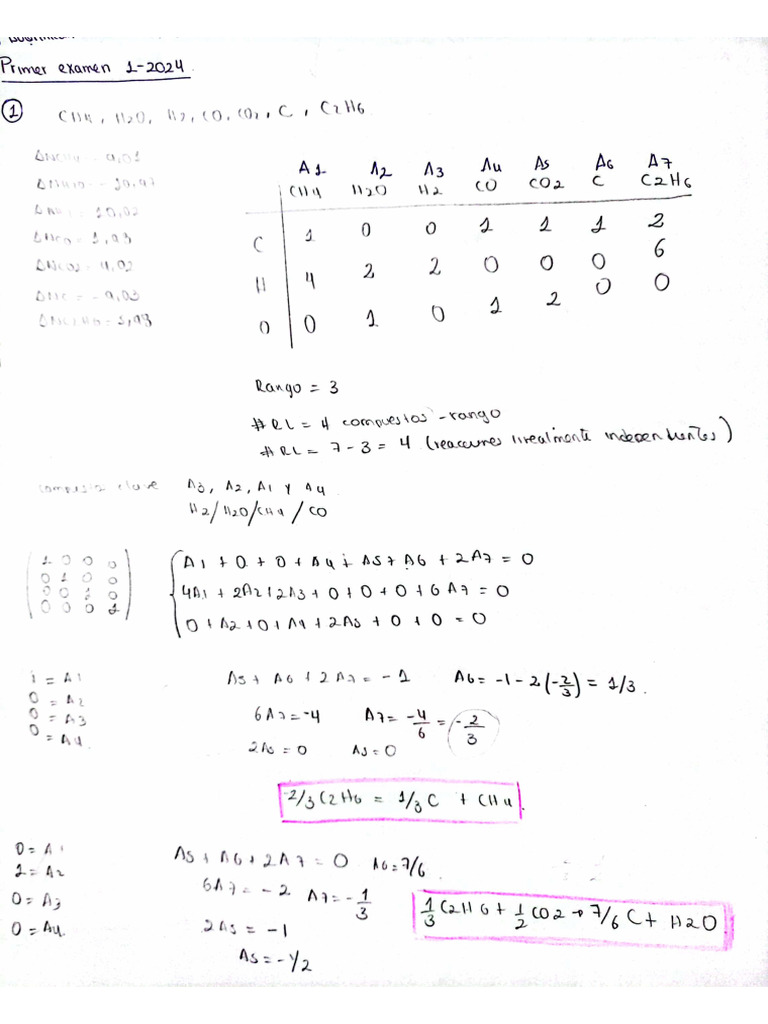 Primer examen 1-2024.
① CH4, H2O, H2, CO, CO2, C, C2H6
ΔNCH4 = 9,01
ΔNH2O = -10,97
ΔNH2 = 10,02
ΔNCO = 1,93
ΔNCO2 = 4,02
ΔNC = -9,03
ΔNC2H6 = 3,98
A1 A2 A3 A4 A5 A6 A7
CH4 H2O H2 CO CO2 C C2H6
C 1 0 0 1 1 1 2
H 4 2 2 0 0 0 6
O 0 1 0 1 2 0 0
Rango = 3
# RL = # compuestos - rango
# RL = 7 - 3 = 4 (reacciones linealmente independientes)
compuesto clave A3, A2, A1 y A4
H2/H2O/CH4/CO
1 0 0 0
0 1 0 0
0 0 1 0
0 0 0 1
A1 + 0 + 0 + A4 + A5 + A6 + 2A7 = 0
4A1 + 2A2 + 2A3 + 0 + 0 + 0 + 6A7 = 0
0 + A2 + 0 + A4 + 2A5 + 0 + 0 = 0
1 = A1
0 = A2
0 = A3
0 = A4
A5 + A6 + 2A7 = -1 A6 = -1 - 2(-2/3) = 1/3.
6A7 = -4 A7 = -4/6 = -2/3
2A5 = 0 A5 = 0
-2/3 C2H6 = 1/3 C + CH4.
0 = A1
1 = A2
0 = A3
0 = A4
A5 + A6 + 2A7 = 0 A6 = 7/6.
6A7 = -2 A7 = -1/3
2A5 = -1
A5 = -1/2
1/3 C2H6 + 1/2 CO2 → 7/6 C + H2O